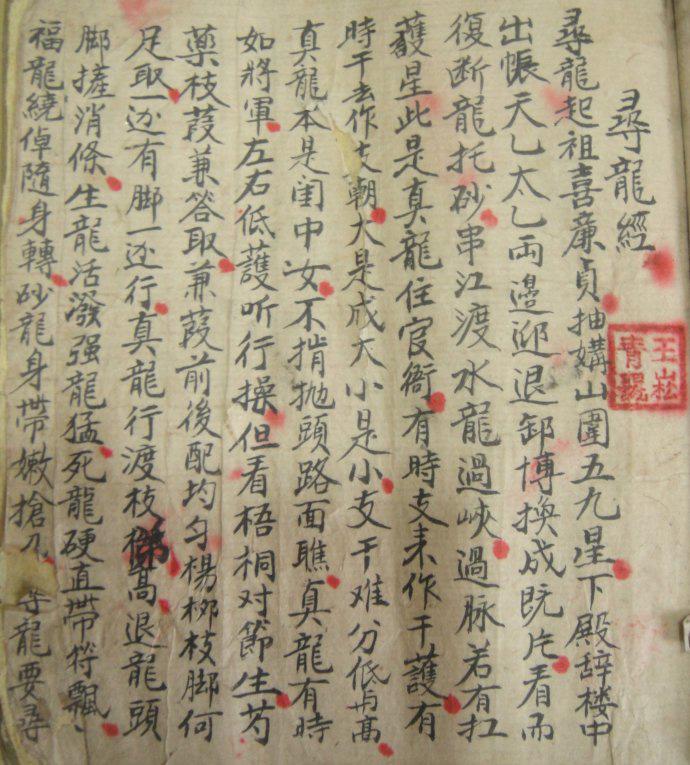 尋龍經
尋龍起祖喜廉貞抽媾山圍五九星下殿辞楼中
出帳天乙太乙両邉迎退卸博換成既片看而
復断龍托砂串江渡水龍過峽過脉若有扛
護星此是真龍住官衙有時支来作干護有
時干去作支朝大是成大小是小支干难分低与高
真龍本是闺中女不揹抛頭路面瞧真龍有時
如將軍左右低護听行操但看梧桐对節生芍
藥枝葭蒹答取蒹葭前後配均匀楊柳枝脚何
足取一边有脚一边行真龍行渡枝梯高退龍頭
脚摧消條生龍活潑强龍猛死龍硬直帶符飄
福龍繞倬隨身轉砂龍身帶嫩搶刀尋龍要尋
王崧
青